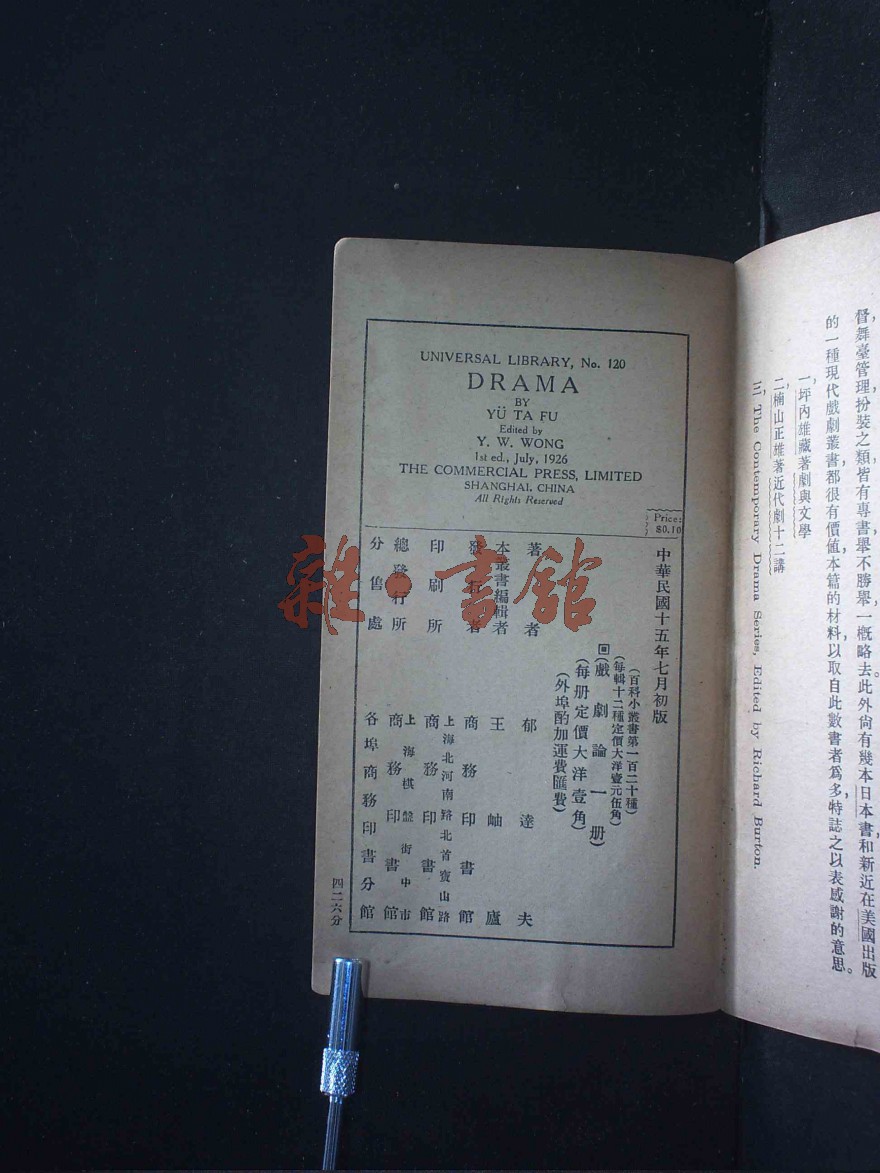 督，舞臺管理，扮裝之類，皆有專書，舉不勝舉，一概略去。此外尚有幾本日本書，和新近在美國出版
的一種現代戲劇叢書，都很有價值，本篇的材料，以取自此數書者爲多，特誌之以表感謝的意思。
一，坪內雄藏著劇與文學
二，楠山正雄著近代劇十二講
三，The Contemporary Drama Series, Edited by Richard Burton.
UNIVERSAL LIBRARY, No. 120
DRAMA
BY
YÜ TA FU
Edited by
Y. W. WONG
1st ed., July, 1926
THE COMMERCIAL PRESS, LIMITED
SHANGHAI, CHINA
All Rights Reserved
Price:
$0.10
中華民國十五年七月初版
（百科小叢書第一百二十種）
（每輯十二種定價大洋壹元伍角）
（戲劇論一册）
（每册定價大洋壹角）
（外埠酌加運費匯費）
著者 郁達夫
本叢書編輯者 王岫廬
發行者 商務印書館
印刷所 上海北河南路北首寶山路 商務印書館
總發行所 上海棋盤街中市 商務印書館
分售處 各埠商務印書分館
四二六分
雜·書館